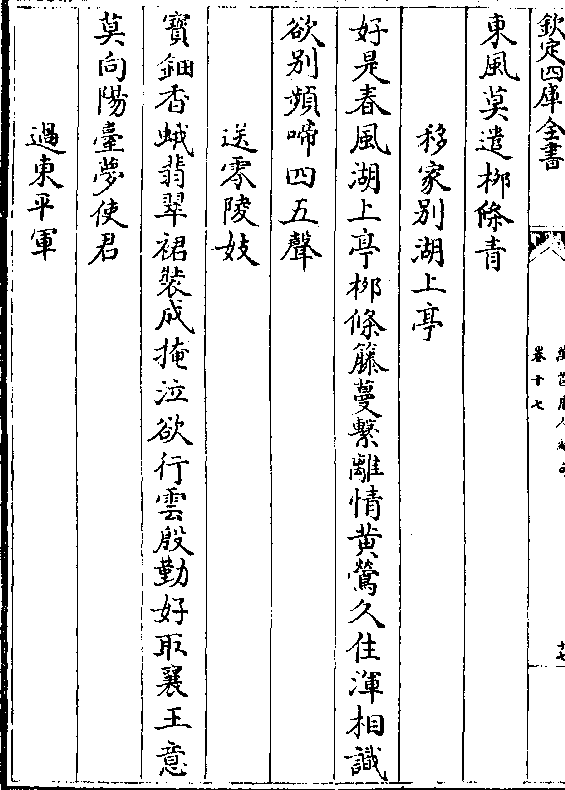 欽定四庫全書
卷十七
東風莫遣桞條青
移家别湖上亭
好是春風湖上亭桞條籐蔓繫離情黄鶯久住渾相識
欲别頻啼四五聲
送零陵妓
寶鈿香蛾翡翠裙装成掩泣欲行雲殷勤好取襄王意
莫向陽臺夢使君
過東平軍